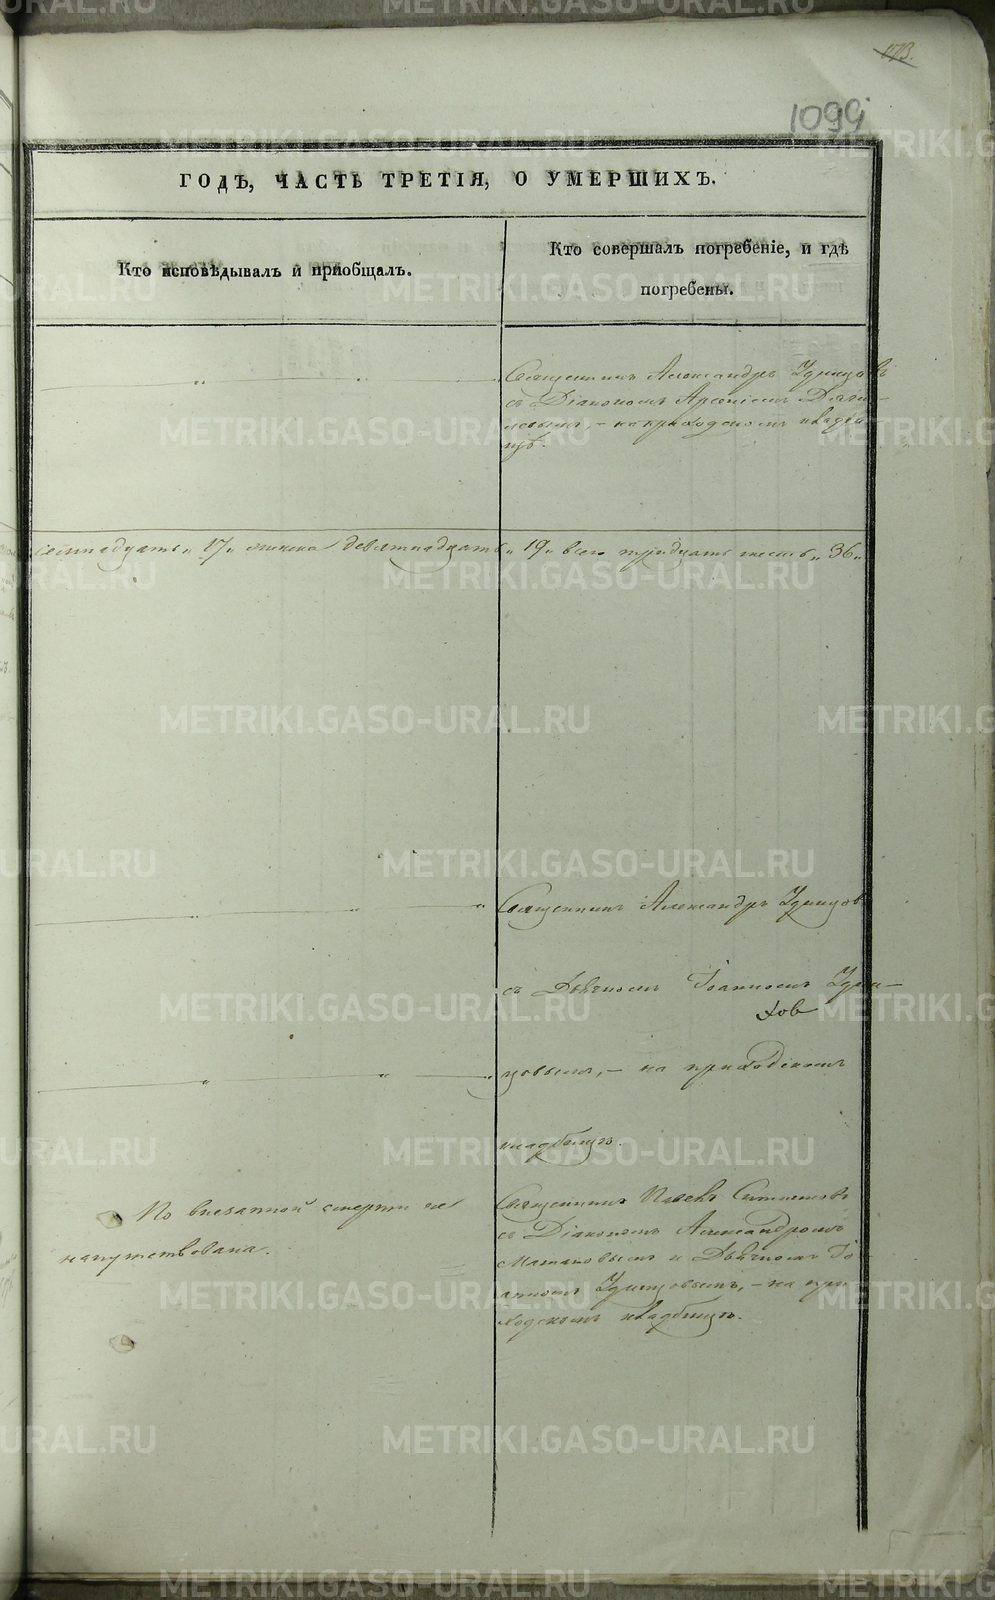 173.
1099
ГОДЪ, ЧАСТЬ ТРЕТІЯ, О УМЕРШИХЪ.
Кто исповѣдывалъ и пріобщалъ.
Кто совершалъ погребеніе, и гдѣ
погребены.
Священникъ Александръ Удинцовъ
съ Діакономъ Арсеніемъ
на приходскомъ кладби-
щѣ.
семнадцать „ 17 „ женска девятнадцать „ 19 „ всего тридцать шесть „ 36 „
Священникъ Александръ Удинцов
съ Дьячкомъ Іоанномъ Удин-
ков
цовымъ, – на приходскомъ
кладбищѣ.
По внезапной смерти не
напутствована.
Священникъ Іаковъ Ситниковъ
съ Діакономъ Александромъ
и Дьячкомъ Іо-
анномъ Удинцовымъ, – на при-
ходскомъ кладбищѣ.
METRIKI.GASO-URAL.RU